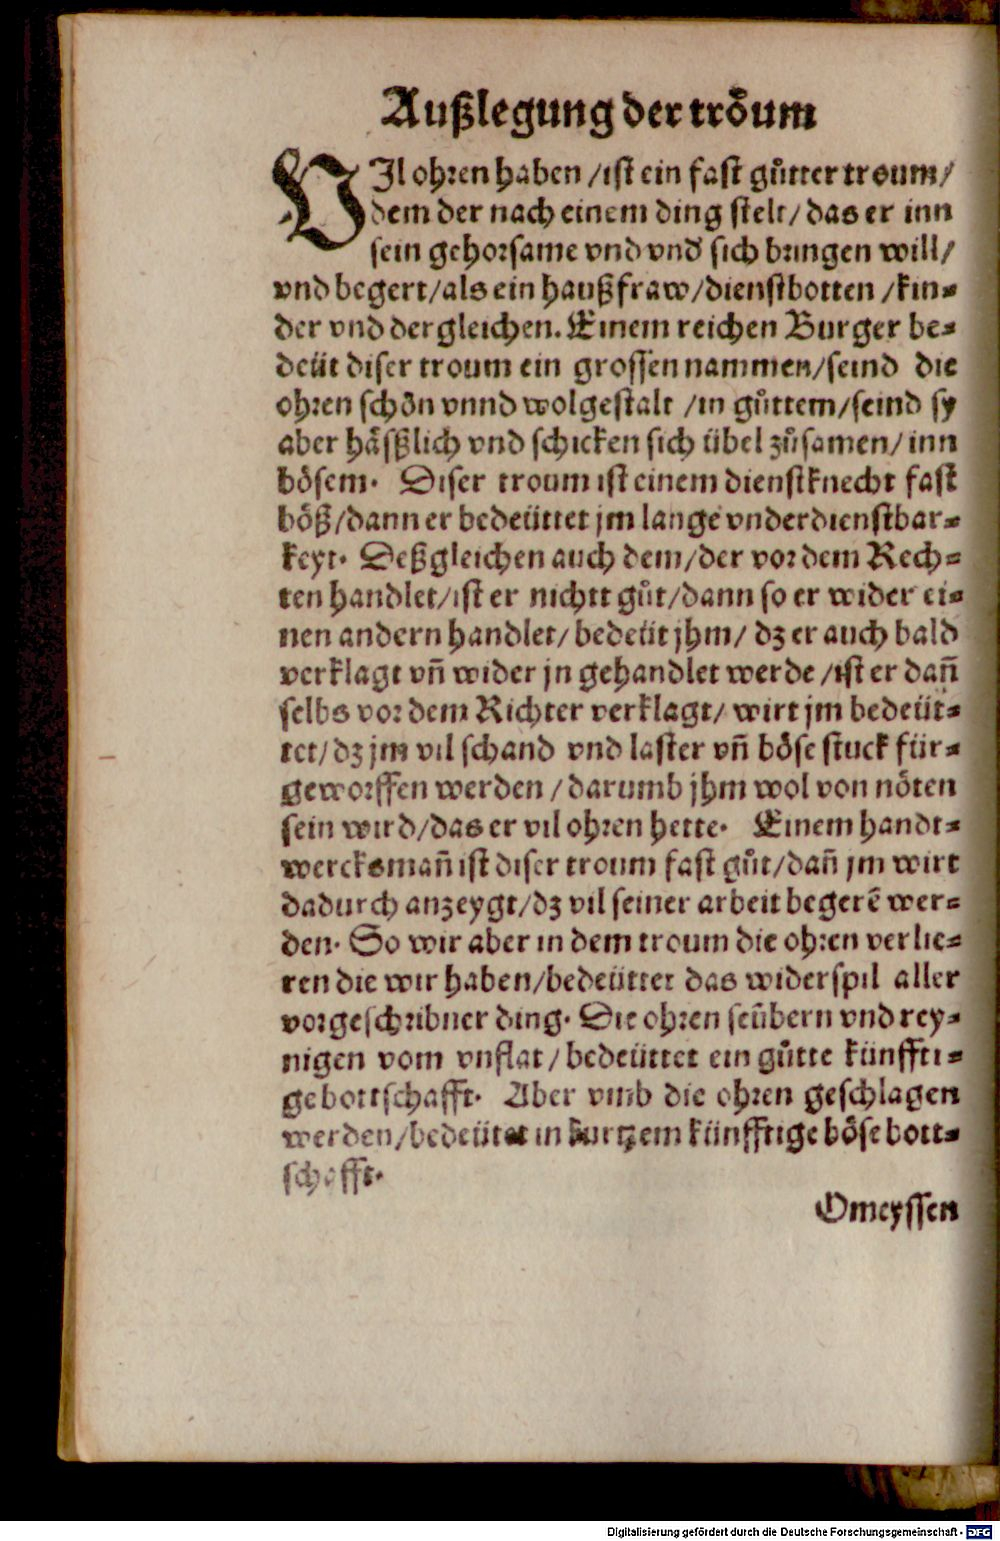 Außlegung der trôum
VJl ohren haben /ist ein fast gůtter troum/
dem der nach einem ding stelt/das er inn
sein gehorsame vnd vnď sich bringen will/
vnd begert/als ein haußfraw/dienstbotten /kin⸗
der vnd dergleichen. Einem reichen Burger be⸗
deüt diser troum ein grossen nammen/seind die
ohren schôn vnnd wolgestalt /in gůttem/seind sy
aber hâsßlich vnd schicken sich übel zůsamen/inn
bôsem. Diser troum ist einem dienstknecht fast
bôß/dann er bedeüttet jm lange vnderdienstbar⸗
keyt. Deßgleichen auch dem/der vor dem Rech⸗
ten handlet/ist er nichtt gůt/dann so er wider ei⸗
nen andern handlet/bedeüt jhm/ dz er auch bald
verklagt vñ wider jn gehandlet werde /ist er dañ
selbs vor dem Richter verklagt/ wirt jm bedeüt⸗
tet/dz jm vil schand vnd laster vñ bôse stuck für⸗
geworffen werden /darumb jhm wol von nôten
sein wird/das er vil ohren hette. Einem handt⸗
wercksmañ ist diser troum fast gůt/dañ jm wirt
dadurch anzeygt/dz vil seiner arbeit begerẽ wer⸗
den. So wir aber in dem troum die ohren verlie⸗
ren die wir haben/bedeüttet das widerspil aller
vorgeschribner ding. Die ohren seûbern vnd rey⸗
nigen vom vnflat/bedeüttet ein gůtte künffti⸗
ge bottschafft. Aber vmb die ohren geschlagen
werden/bedeütet in kurtzem künfftige bôse bott⸗
schafft.
Omeyssen
Digitalisierung gefördert durch die Deutsche Forschungsgemeinschaft - DFG